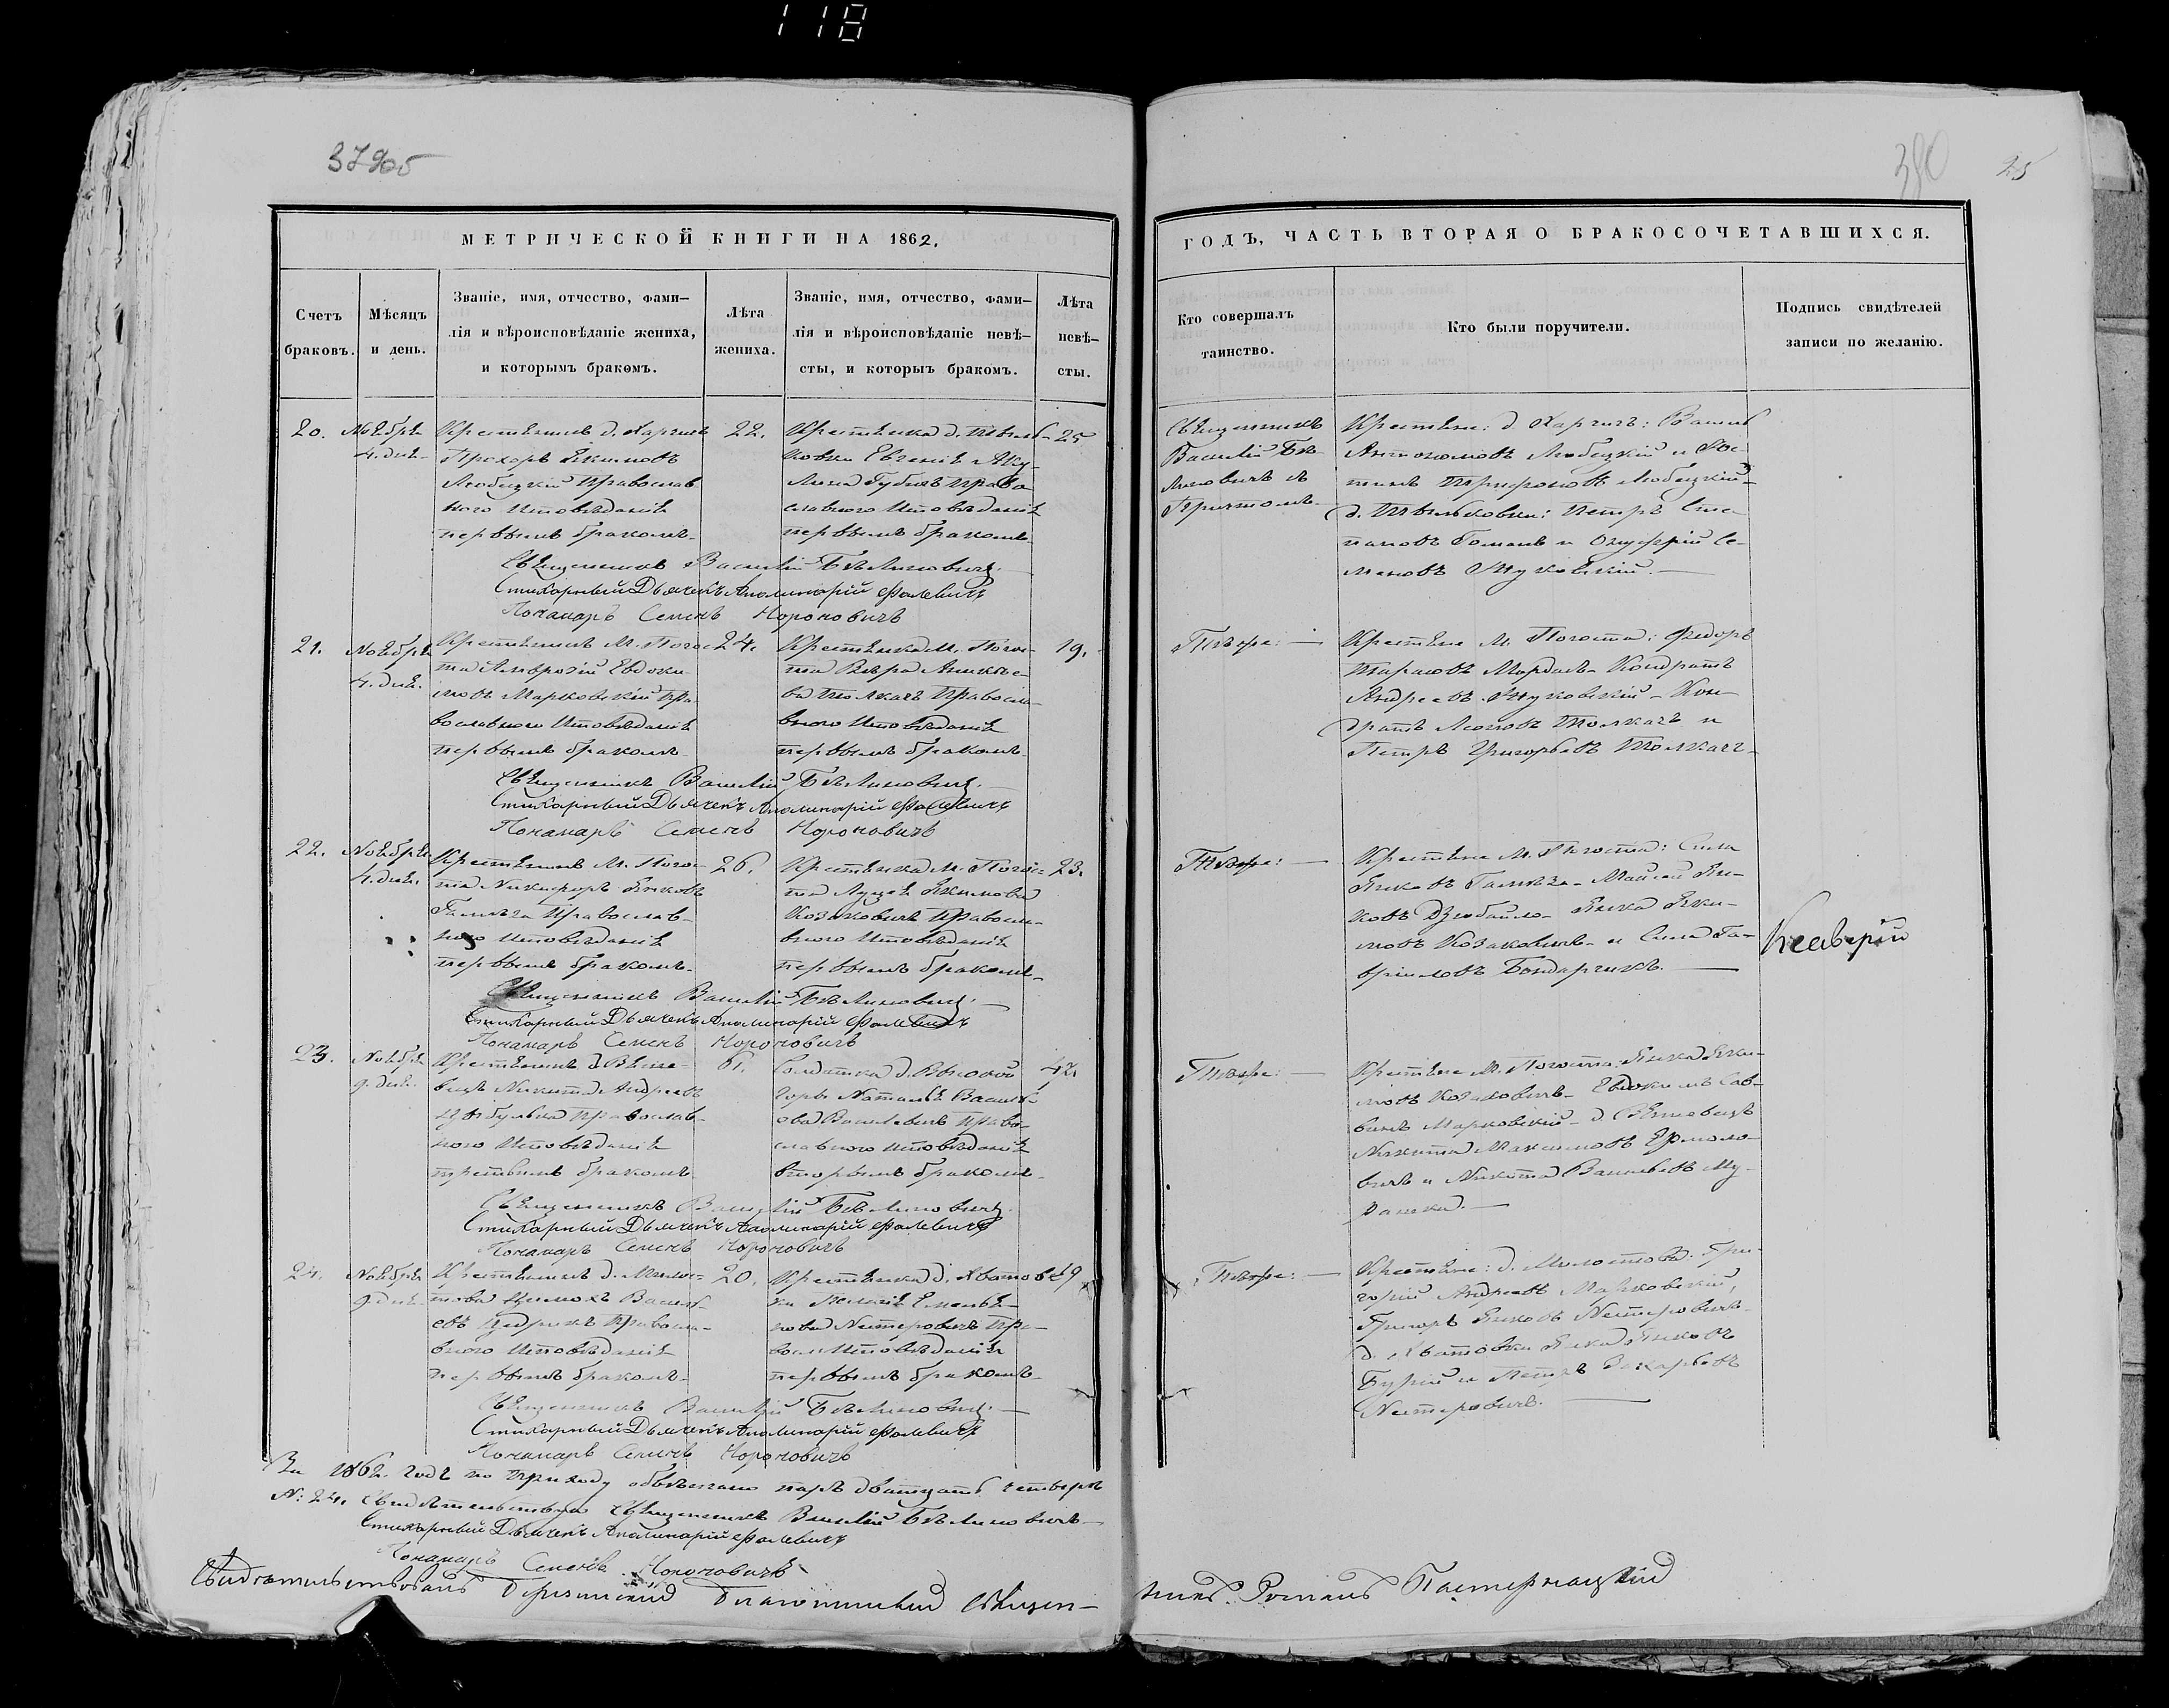 118
380
25
МЕТРИЧЕСКОЙ КНИГИ НА 1862,
Счетъ браковъ.
Мѣсяцъ и день.
Званіе, имя, отчество, фами-
лія и вѣроисповѣданіе жениха,
и которымъ бракомъ.
Лѣта
жениха.
Званіе, имя, отчество, фами-
лія и вѣроисповѣданіе невѣ-
сты, и которыъ бракомъ.
Лѣта
невѣ-
сты.
ГОДЪ, ЧАСТЬ ВТОРАЯ О БРАКОСОЧЕТАВШИХСЯ.
Кто совершалъ
таинство.
Кто были поручители.
Подпись свидѣтелей
записи по желанію.
20.
Ноября
4. дня
Крестьянинъ д.
Прохоръ Якимовъ
Любецкій Православ
ного Исповѣданія
первымъ бракомъ
22.
Крестьянка д.
ковки Евгенія Аку
лина Губичъ Право
славного Исповѣданія
первымъ бракомъ
25
Священникъ
Василій Бѣ-
линовичъ
Крестьяне: д. Харичъ: Василь
Антоновъ Любецкій и
Трифоновъ Любецкій
Петръ Сте-
пановъ Гоманъ и Онуфрій Се-
меновъ Жуковскій.
Священникъ Василій Бѣлиновичъ.
Стихарный Дьячекъ Аполинарій Фалевичъ
Понамарь Семенъ Нороновичъ
21.
Ноября
4. дня.
Крестьянинъ М. Погос
та Амвросій Евдоки-
мовъ Марковскій Пра
вославного Исповѣданія
первымъ бракомъ
24.
Крестьянка М. Погос-
та Вѣра
Толкачъ Правосла-
вного Исповѣданія
первымъ бракомъ
19.
Тѣже:
Крестьяне М. Погоста: Федоръ
Тарасовъ Кондратъ
Андреевъ Жуковскій Кон
дратъ Леоновъ Толкачъ и
Петръ Григорьевъ Толкачъ
Священникъ Василій Бѣлиновичъ.
Стихарный Дьячекъ Аполинарій Фалевичъ
Понамарь Семенъ Нороновичъ
22.
Ноября
4. дня.
Крестьянинъ М. Погос-
та Никифоръ Янковъ
Православ-
ного Исповѣданія
первымъ бракомъ
26.
Крестьянка М. Погос-
та Луція Якимова
Козаковичъ Правосла-
вного Исповѣданія
первымъ бракомъ
23.
Тѣже:
Крестьяне М. Погоста: Сила
Янковъ Ян-
ковъ Дзюбайло Янка Яки-
мовъ Козаковичъ и Сила Га-
вриловъ Бондарчикъ.
Священникъ Василій Бѣлиновичъ.
Стихарный Дьячекъ Аполинарій Фалевичъ
Понамарь Семенъ Нороновичъ
23.
Ноября
9. дня.
Крестьянинъ д.
Никита Андреевъ
Цыбулька Православ-
ного Исповѣданія
третьимъ бракомъ
61.
Солдатка д. Высокой
Горы Наталія Василь-
ова Василевичъ Право-
славного Исповѣданія
вторымъ бракомъ
42.
Тѣже:
Крестьяне М. Погоста: Янка Яки-
мовъ Козаковичъ Евдокимъ Сав-
винъ Марковскій
Никита Максимовъ Ермоло-
вичъ и Никита Васильевъ Му-
рашка.
Священникъ Василій Бѣлиновичъ.
Стихарный Дьячекъ Аполинарій Фалевичъ
Понамарь Семенъ Нороновичъ
24.
Ноября
9. дня
Крестьянинъ д. Милос-
това Василь-
евъ Цедрикъ Правосла-
вного Исповѣданія
первымъ бракомъ
20.
Крестьянка д. Хватов
ки Пелагія Емелья-
нова Нестеровичъ Пра-
вос Исповѣданія
первымъ бракомъ
19
Тѣже:
Крестьяне: д. Милостова: Гри-
горій Андреевъ Марковскій,
Григоръ Янковъ Нестеровичъ
д. Хватовки Янка Янковъ
Бурый и Петръ Захарьевъ
Нестеровичъ.
Священникъ Василій Бѣлиновичъ.
Стихарный Дьячекъ Аполинарій Фалевичъ
Понамарь Семенъ Нороновичъ
За 1862. годъ по приходу обвѣнчано паръ двадцать четверть
N: 24. Свидѣтельствую Священникъ Василій Бѣлиновичъ
Стихарный Дьячекъ Аполинарій Фалевичъ
Понамарь Семенъ Нороновичъ
Свидѣтельствовалъ Благочинный Священ-
никъ Романъ Пастернацкій